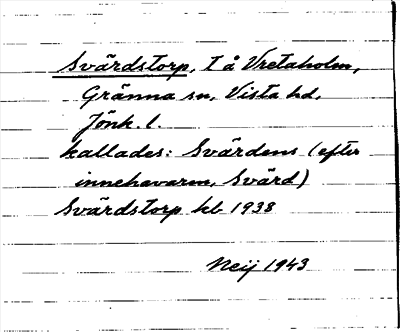 Svärdstorp, T å Vretaholm,
Gränna sn, Vista hd,
Jönk. l.
kallades: Svärdens (efter
innehavaren, Svärd)
Svärdstorp kb 1938
Neij 1943